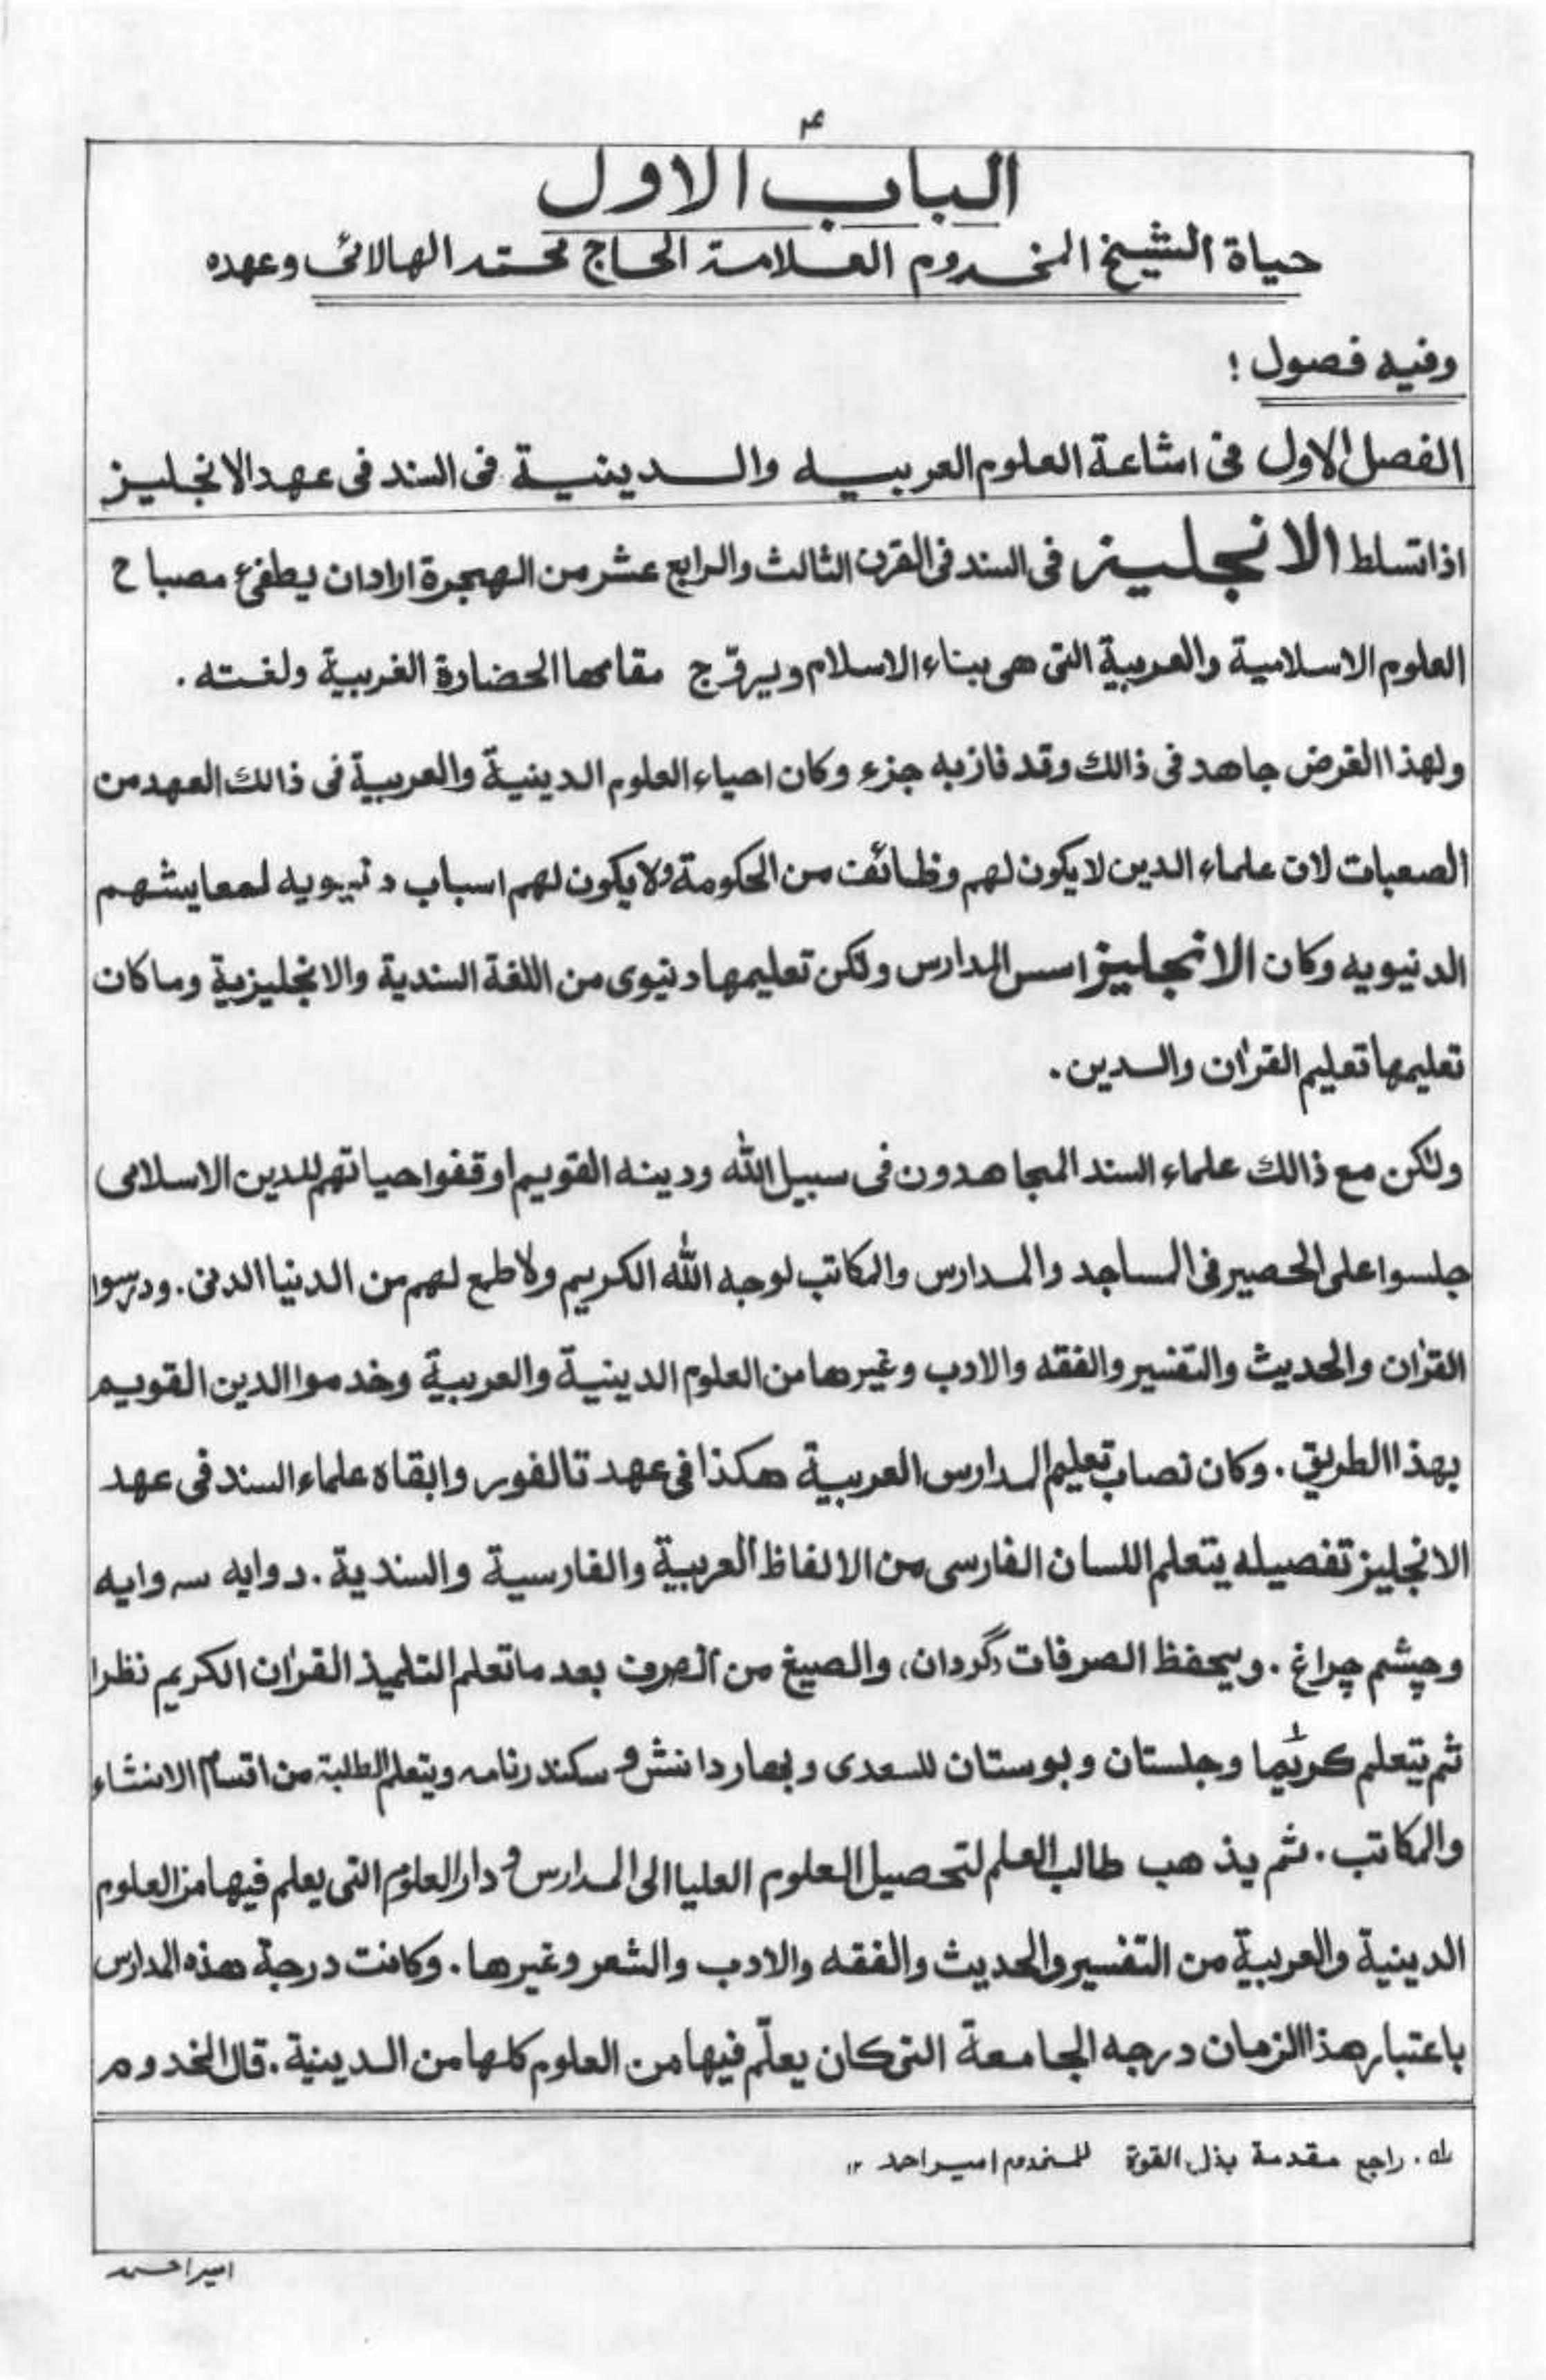 ۴
الباب الاول
حياة الشيخ المخدوم العلامة الحاج محمد الهالائى وعهده
وفيه فصول :
الفصل الاول فى اشاعة العلوم العربيه والدينية فى السند فى عهد الانجليز
اذا تسلط الانجليز فى السند فى القرن الثالث والرابع عشر من الهجرة اراد ان يطفئ مصباح
العلوم الاسلامية والعربية التى هى بناء الاسلام ويروّج مقامها الحضارة الغربية ولغته .
ولهذا الغرض جاهد فى ذالك وقد فاز به جزء وكان احياء العلوم الدينية والعربية فى ذالك العهد من
الصعبات لان علماء الدين لا يكون لهم وظائف من الحكومة ولا يكون لهم اسباب دنيويه لمعايشهم
الدنيويه وكان الانجليز اسس المدارس ولكن تعليمها دنيوى من اللغة السندية والانجليزية وما كان
تعليمها تعليم القرٰان والدين .
ولكن مع ذالك علماء السند المجاهدون فى سبيل الله ودينه القويم اوقفوا حياتهم للدين الاسلامى
جلسوا على الحصير فى المساجد والمدارس والمكاتب لوجه الله الكريم ولا طمع لهم من الدنيا الدنى . ودرسوا
القرٰان والحديث والتفسير والفقه والادب وغيرها من العلوم الدينية والعربية وخدموا الدين القويم
بهذا الطريق . وكان نصاب تعليم المدارس العربية هكذا فى عهد تالفور وابقاه علماء السند فى عهد
الانجليز تفصيله يتعلم اللسان الفارسى من الالفاظ العربية والفارسية والسندية . دوايه سه وايه
وچشم چراغ . ويحفظ الصرفات (گردان) والصيغ من الصرف بعد ما تعلم التلميذ القرٰان الكريم نظرا
ثم يتعلم كريما وجلستان وبوستان للسعدى وبهار دانش و سكندر نامه ويتعلم الطلبة من اقسام الانشاء
والمكاتب . ثم يذهب طالب العلم لتحصيل العلوم العليا الى المدارس و دار العلوم التى يعلم فيها من العلوم
الدينية والعربية من التفسير والحديث والفقه والادب والشعر وغيرها . وكانت درجة هذه المدارس
باعتبار هذا الزمان درجه الجامعة التى كان يعلّم فيها من العلوم كلها من الدينية . قال المخدوم
له . راجع مقدمة بذل القوة للمخدوم امير احمد ۱۲
امير احمد